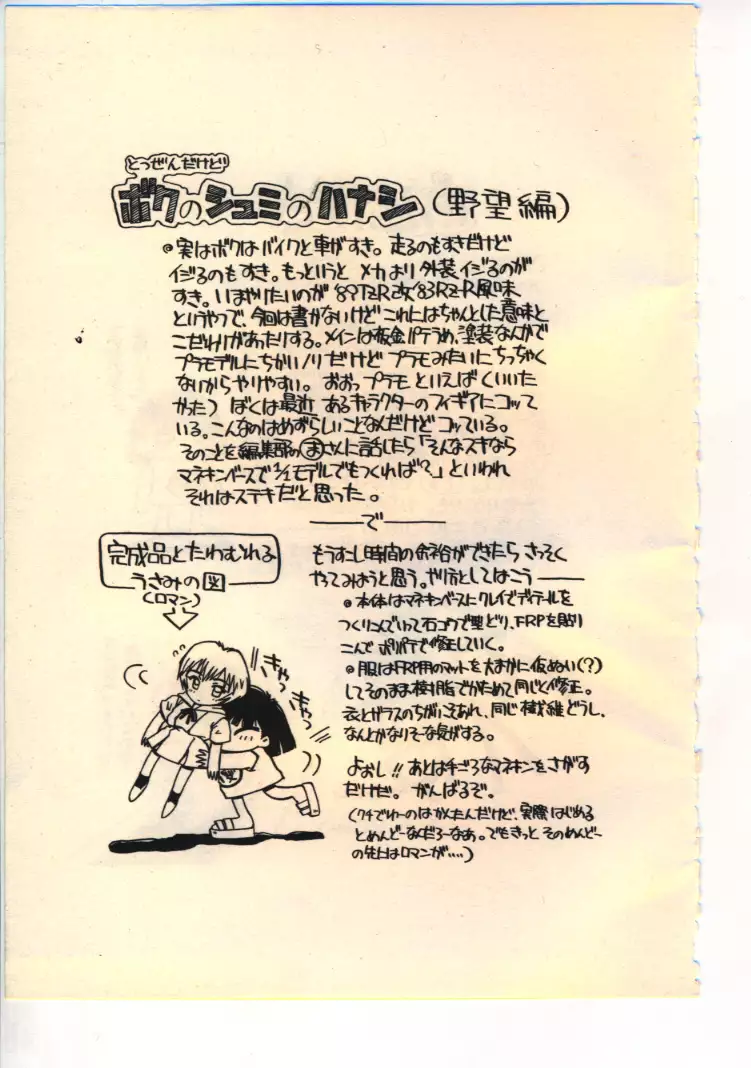 とつぜんだけど
ボクのシュミのハナシ（野望編）
◎実はボクはバイクと車がすき。走るのもすきだけど
イジるのもすき。もっというと メカより外装イジるのが
すき。いまやりたいのが '89TZR改'83RZ-R風味
というやつで、今回は書かないけど これにはちゃんとした意味と
こだわりがあったりする。メインは板金パテうめ、塗装なんかで
プラモデルにちかいノリだけど プラモみたいにちっちゃく
ないからやりやすい。おおっプラモといえば（いいた
かった）ぼくは最近 あるキャラクターのフィギアにコッて
いる。こんなのはめずらしいことなんだけどコッている。
そのことを編集部のまさんに話したら「そんなスキなら
マネキンベースで1/1モデルでもつくれば?」といわれ
それはステキだと思った。
――で――
もうすこし時間の余裕ができたら さっそく
やってみようと思う。やり方としてはこう――
◎本体はマネキンベースにクレイでディテールを
つくりこんでいって石コウで型どり、FRPを貼り
こんで ポリパテで修正していく。
◎服はFRP用のマットを大まかに仮ぬい(?)
してそのまま樹脂でかためて同じく修正。
衣とガラスのちがいこそあれ、同じ繊維どうし、
なんとかなりそーな気がする。
よおし!! あとは手ごろなマネキンをさがす
だけだ。がんばるぞ。
(クチでゆーのはかんたんだけど、実際はじめる
とめんどーなんだろーなあ。でもきっと そのめんどー
の先にはロマンが....)
完成品とたわむれる
うさみの図
(ロマン)
きゃっ
きゃっ